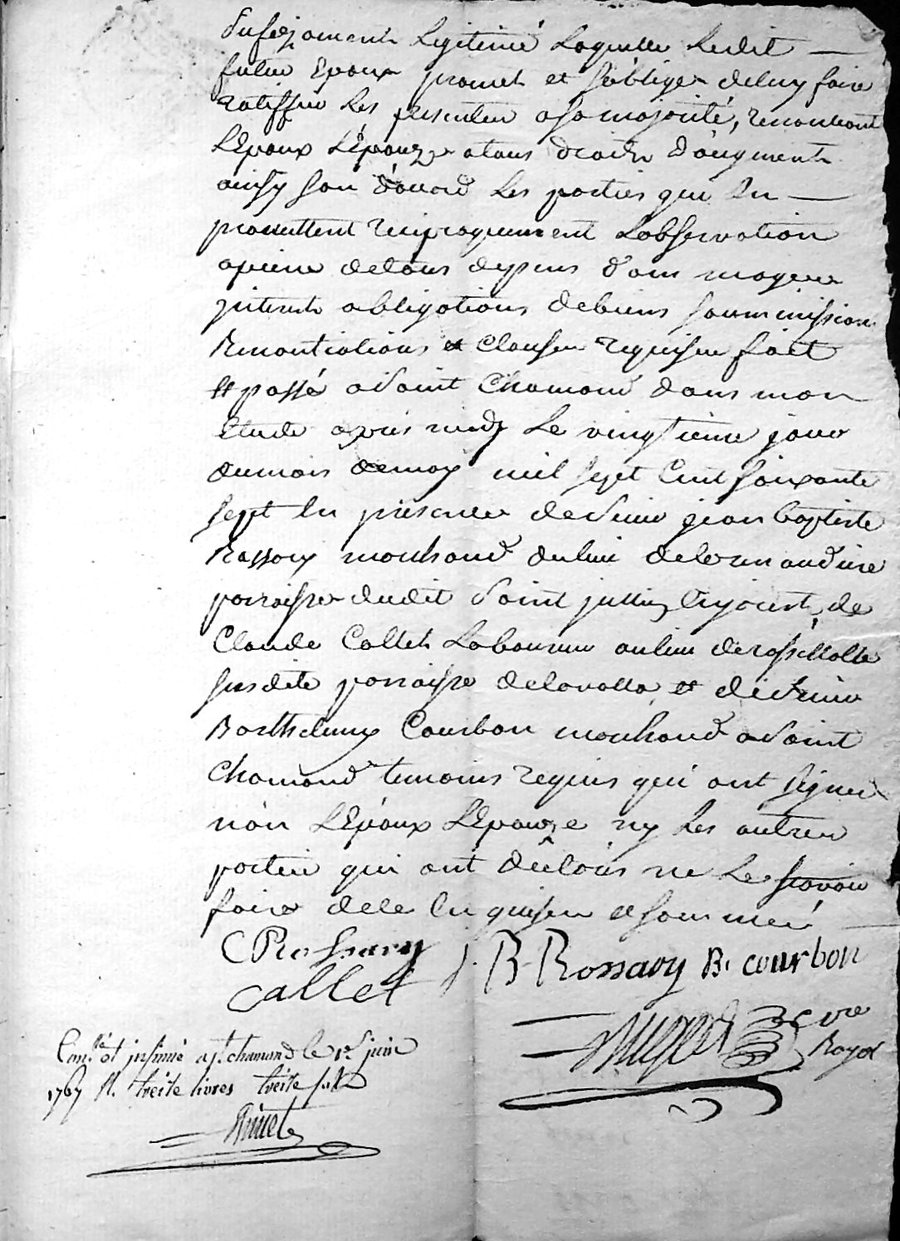 Légitime Laquelle Ledit
futur Epoux promet et s'oblige deluy faire
ratiffier Les presentes asa majorité, renoncant
L'Epoux L'Epouze atous droits D'augment
ainsy son d'acord Les parties qui En
promettent reciproquement L'observation
apeine detous depens dom mages
jnterets obligations debiens soummission
Renontiations et Clauses requises fait
et passé aSaint Chamond dans mon
Etude aprés midy Le vingtiéme jour
dumois demay mil sept Cent soixante
sept En presence deSieur jean baptiste
Rossary marchand dulieu
parroisse dudit Saint de
Claude Collet Laboureur aulieu
susdite parroisse delavalla et deSieur
Barthelemy Courbon marchand aSaint
Chamond temoins requis qui ont signé
nòn L'Epoux L'Epouze ny Les autres
parties qui ont déclaré ne Le scavoir
faire dece Enquises et sommé
C Rossary J B Rossary B. courbon
Collet
Royal
Con.lé et jnsinué a st. chamond le 1er juin
1767 R. treize livres treize sols